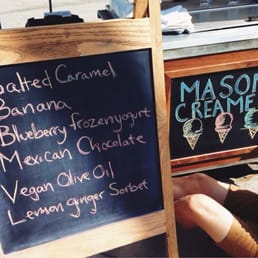 Salted Caramel
Banana
Blueberry frozen yogurt
Mexican Chocolate
Vegan Olive Oil
Lemon ginger Sorbet
MASON
CREAME